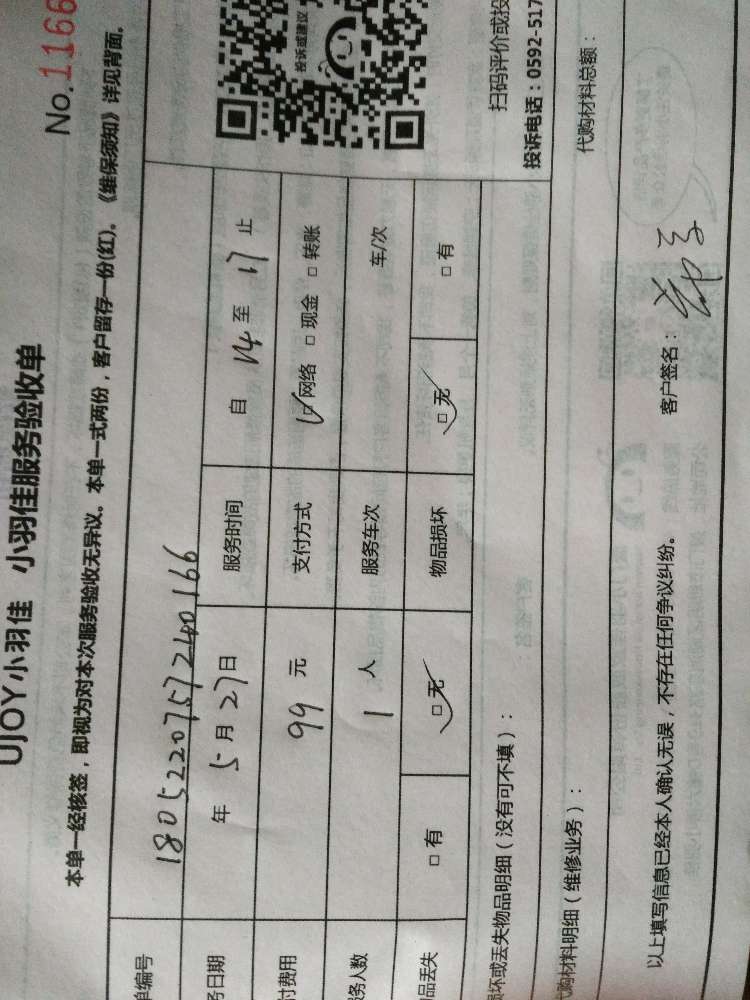 UJOY小羽佳 小羽佳服务验收单
No.1166
本单一经核签，即视为对本次服务验收无异议。本单一式两份，客户留存一份(红)。《维保须知》详见背面。
单编号 1805220757240166
务日期 年 5月27日 服务时间 自 14 至 17 止
付费用 99 元 支付方式 ☑网络 □现金 □转账
务人数 1 人 服务车次 车/次
品丢失 □有 ☑无 物品损坏 ☑无 □有
投诉或建议
扫码评价或投
投诉电话：0592-517
损坏或丢失物品明细（没有可不填）：
代购材料明细（维修业务）： 代购材料总额：
以上填写信息已经本人确认无误，不存在任何争议纠纷。 客户签名：